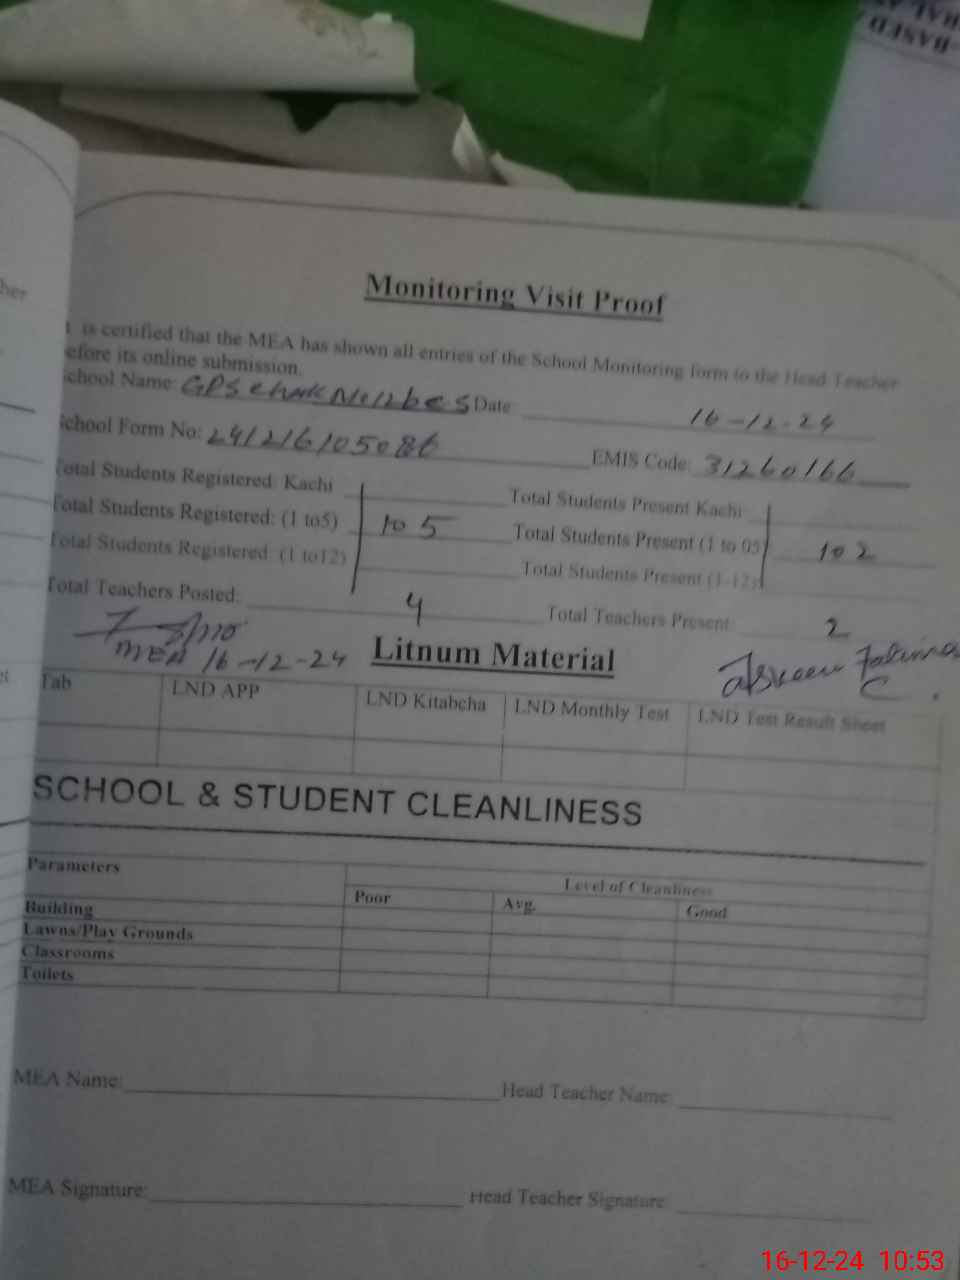 RAL
-BASED
her
is certified that the MEA has shown all entries of the School Monitoring form to the Head Teacher
efore its online submission.
Monitoring Visit Proof
chool Name: GPS chak No 12bcs Date 16-12-24
chool Form No: 241216105086 EMIS Code: 31260166
otal Students Registered: Kachi Total Students Present Kachi
otal Students Registered: (1 to5) 105 Total Students Present (1 to 05) 102
otal Students Registered: (1 to12) Total Students Present (1-12)
otal Teachers Posted: 4 Total Teachers Present: 2
MEA 16-12-24
Litnum Material
Fatima
Tab LND APP LND Kitabcha LND Monthly Test LND Test Result Sheet
SCHOOL & STUDENT CLEANLINESS
Parameters Level of Cleanliness
Poor Avg. Good
Building
Lawns/Play Grounds
Classrooms
Toilets
MEA Name: Head Teacher Name:
MEA Signature: Head Teacher Signature:
16-12-24 10:53